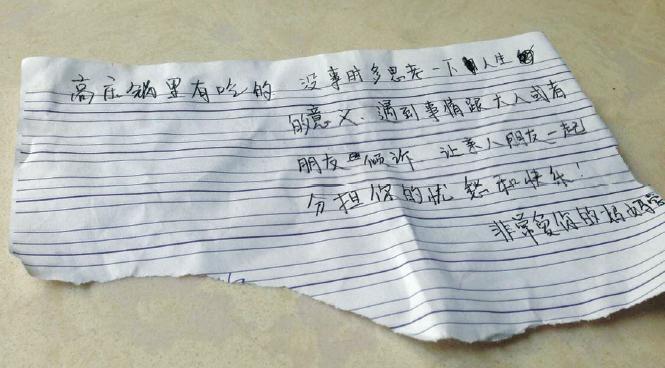 高庄锅里有吃的
没事时多思考一下人生
的意义、遇到事情跟大人或者
朋友倾诉、让亲人朋友一起
分担你的忧愁和快乐！
非常爱你的妈妈